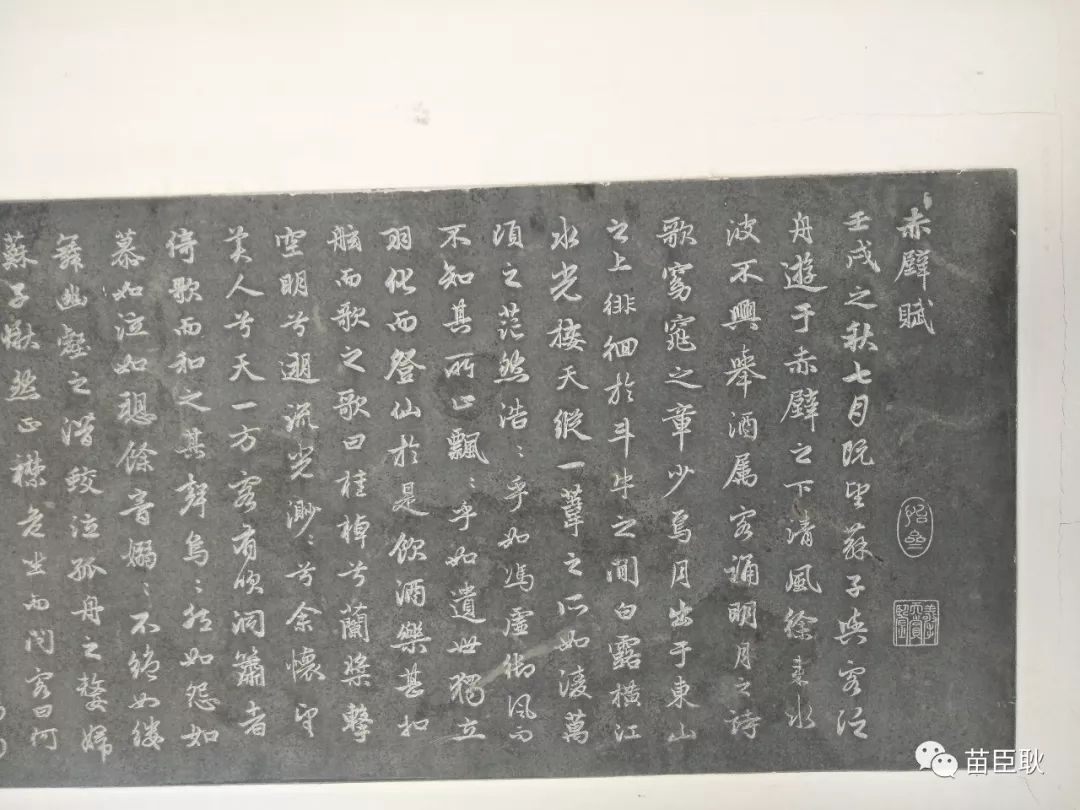 赤壁賦
壬戌之秋七月既望蘇子與客泛
舟遊于赤壁之下清風徐來水
波不興舉酒属客誦明月之詩
歌窈窕之章少焉月出于東山
之上徘徊於斗牛之間白露橫江
水光接天縱一葦之所如凌萬
頃之茫然浩〻乎如馮虛御風而
不知其所止飄〻乎如遺世獨立
羽化而登仙於是飲酒樂甚扣
舷而歌之歌曰桂棹兮蘭槳擊
空明兮遡流光渺〻兮余懷望
美人兮天一方客有吹洞簫者
倚歌而和之其聲烏〻然如怨如
慕如泣如訴餘音嫋〻不絕如縷
舞幽壑之潛蛟泣孤舟之嫠婦
蘇子愀然正襟危坐而問客曰何
苗臣耿